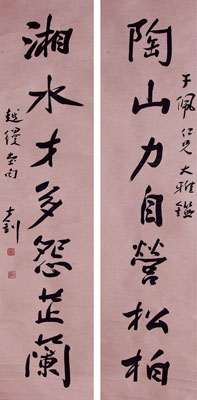 陶山力自營松柏
子佩仁兄大雅鑒
湘水才多怨芷蘭
越縵